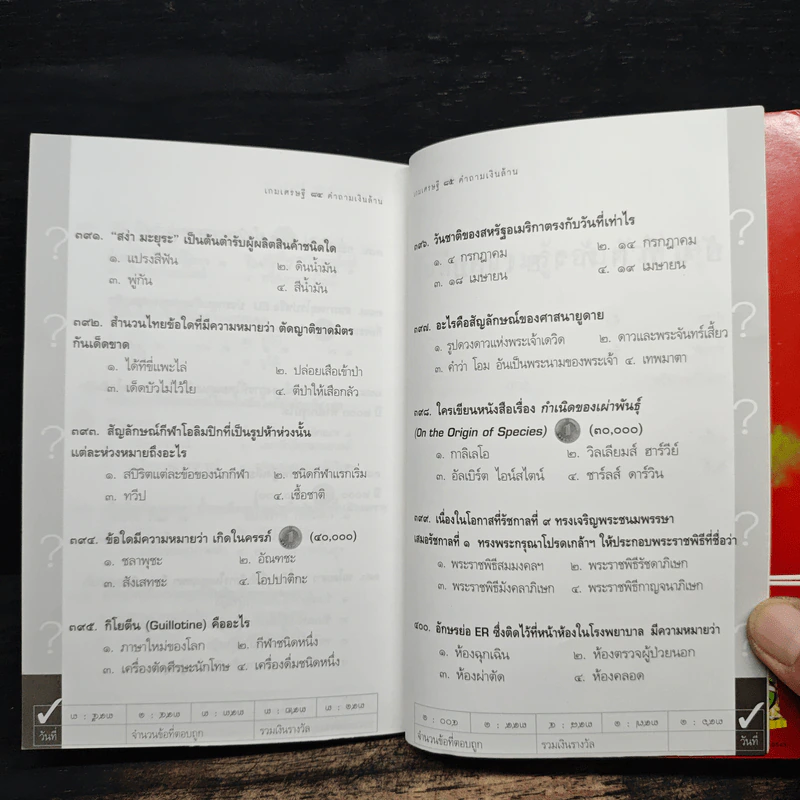 เกมเศรษฐี ๘๔ คำถามเงินล้าน
๓๙๑. "สง่า มะยุระ" เป็นต้นตำรับผู้ผลิตสินค้าชนิดใด
๑. แปรงสีฟัน ๒. ดินน้ำมัน
๓. พู่กัน ๔. สีน้ำมัน
๓๙๒. สำนวนไทยข้อใดที่มีความหมายว่า ตัดญาติขาดมิตร
กันเด็ดขาด
๑. ได้ทีขี่แพะไล่ ๒. ปล่อยเสือเข้าป่า
๓. เด็ดบัวไม่ไว้ใย ๔. ตีปลาให้เสือกลัว
๓๙๓. สัญลักษณ์กีฬาโอลิมปิกที่เป็นรูปห้าห่วงนั้น
แต่ละห่วงหมายถึงอะไร
๑. สปิริตแต่ละข้อของนักกีฬา ๒. ชนิดกีฬาแรกเริ่ม
๓. ทวีป ๔. เชื้อชาติ
๓๙๔. ข้อใดมีความหมายว่า เกิดในครรภ์ (๔๐,๐๐๐)
๑. ชลาพุชะ ๒. อัณฑชะ
๓. สังเสทชะ ๔. โอปปาติกะ
๓๙๕. กิโยตีน (Guillotine) คืออะไร
๑. ภาษาใหม่ของโลก ๒. กีฬาชนิดหนึ่ง
๓. เครื่องตัดศีรษะนักโทษ ๔. เครื่องดื่มชนิดหนึ่ง
วันที่
จำนวนข้อที่ตอบถูก รวมเงินรางวัล
เกมเศรษฐี ๘๕ คำถามเงินล้าน
๓๙๖. วันชาติของสหรัฐอเมริกาตรงกับวันที่เท่าไร
๑. ๔ กรกฎาคม ๒. ๑๔ กรกฎาคม
๓. ๑๘ เมษายน ๔. ๑๙ เมษายน
๓๙๗. อะไรคือสัญลักษณ์ของศาสนายูดาย
๑. รูปดวงดาวแห่งพระเจ้าเดวิด ๒. ดาวและพระจันทร์เสี้ยว
๓. คำว่า โอม อันเป็นพระนามของพระเจ้า ๔. เทพมาตา
๓๙๘. ใครเขียนหนังสือเรื่อง กำเนิดของเผ่าพันธุ์
(On the Origin of Species) (๓๐,๐๐๐)
๑. กาลิเลโอ ๒. วิลเลียมส์ ฮาร์วีย์
๓. อัลเบิร์ต ไอน์สไตน์ ๔. ชาร์ลส์ ดาร์วิน
๓๙๙. เนื่องในโอกาสที่รัชกาลที่ ๙ ทรงเจริญพระชนมพรรษา
เสมอรัชกาลที่ ๑ ทรงพระกรุณาโปรดเกล้าฯ ให้ประกอบพระราชพิธีที่ชื่อว่า
๑. พระราชพิธีสมมงคลฯ ๒. พระราชพิธีรัชดาภิเษก
๓. พระราชพิธีมังคลาภิเษก ๔. พระราชพิธีกาญจนาภิเษก
๔๐๐. อักษรย่อ ER ซึ่งติดไว้ที่หน้าห้องในโรงพยาบาล มีความหมายว่า
๑. ห้องฉุกเฉิน ๒. ห้องตรวจผู้ป่วยนอก
๓. ห้องผ่าตัด ๔. ห้องคลอด
จำนวนข้อที่ตอบถูก รวมเงินรางวัล
วันที่